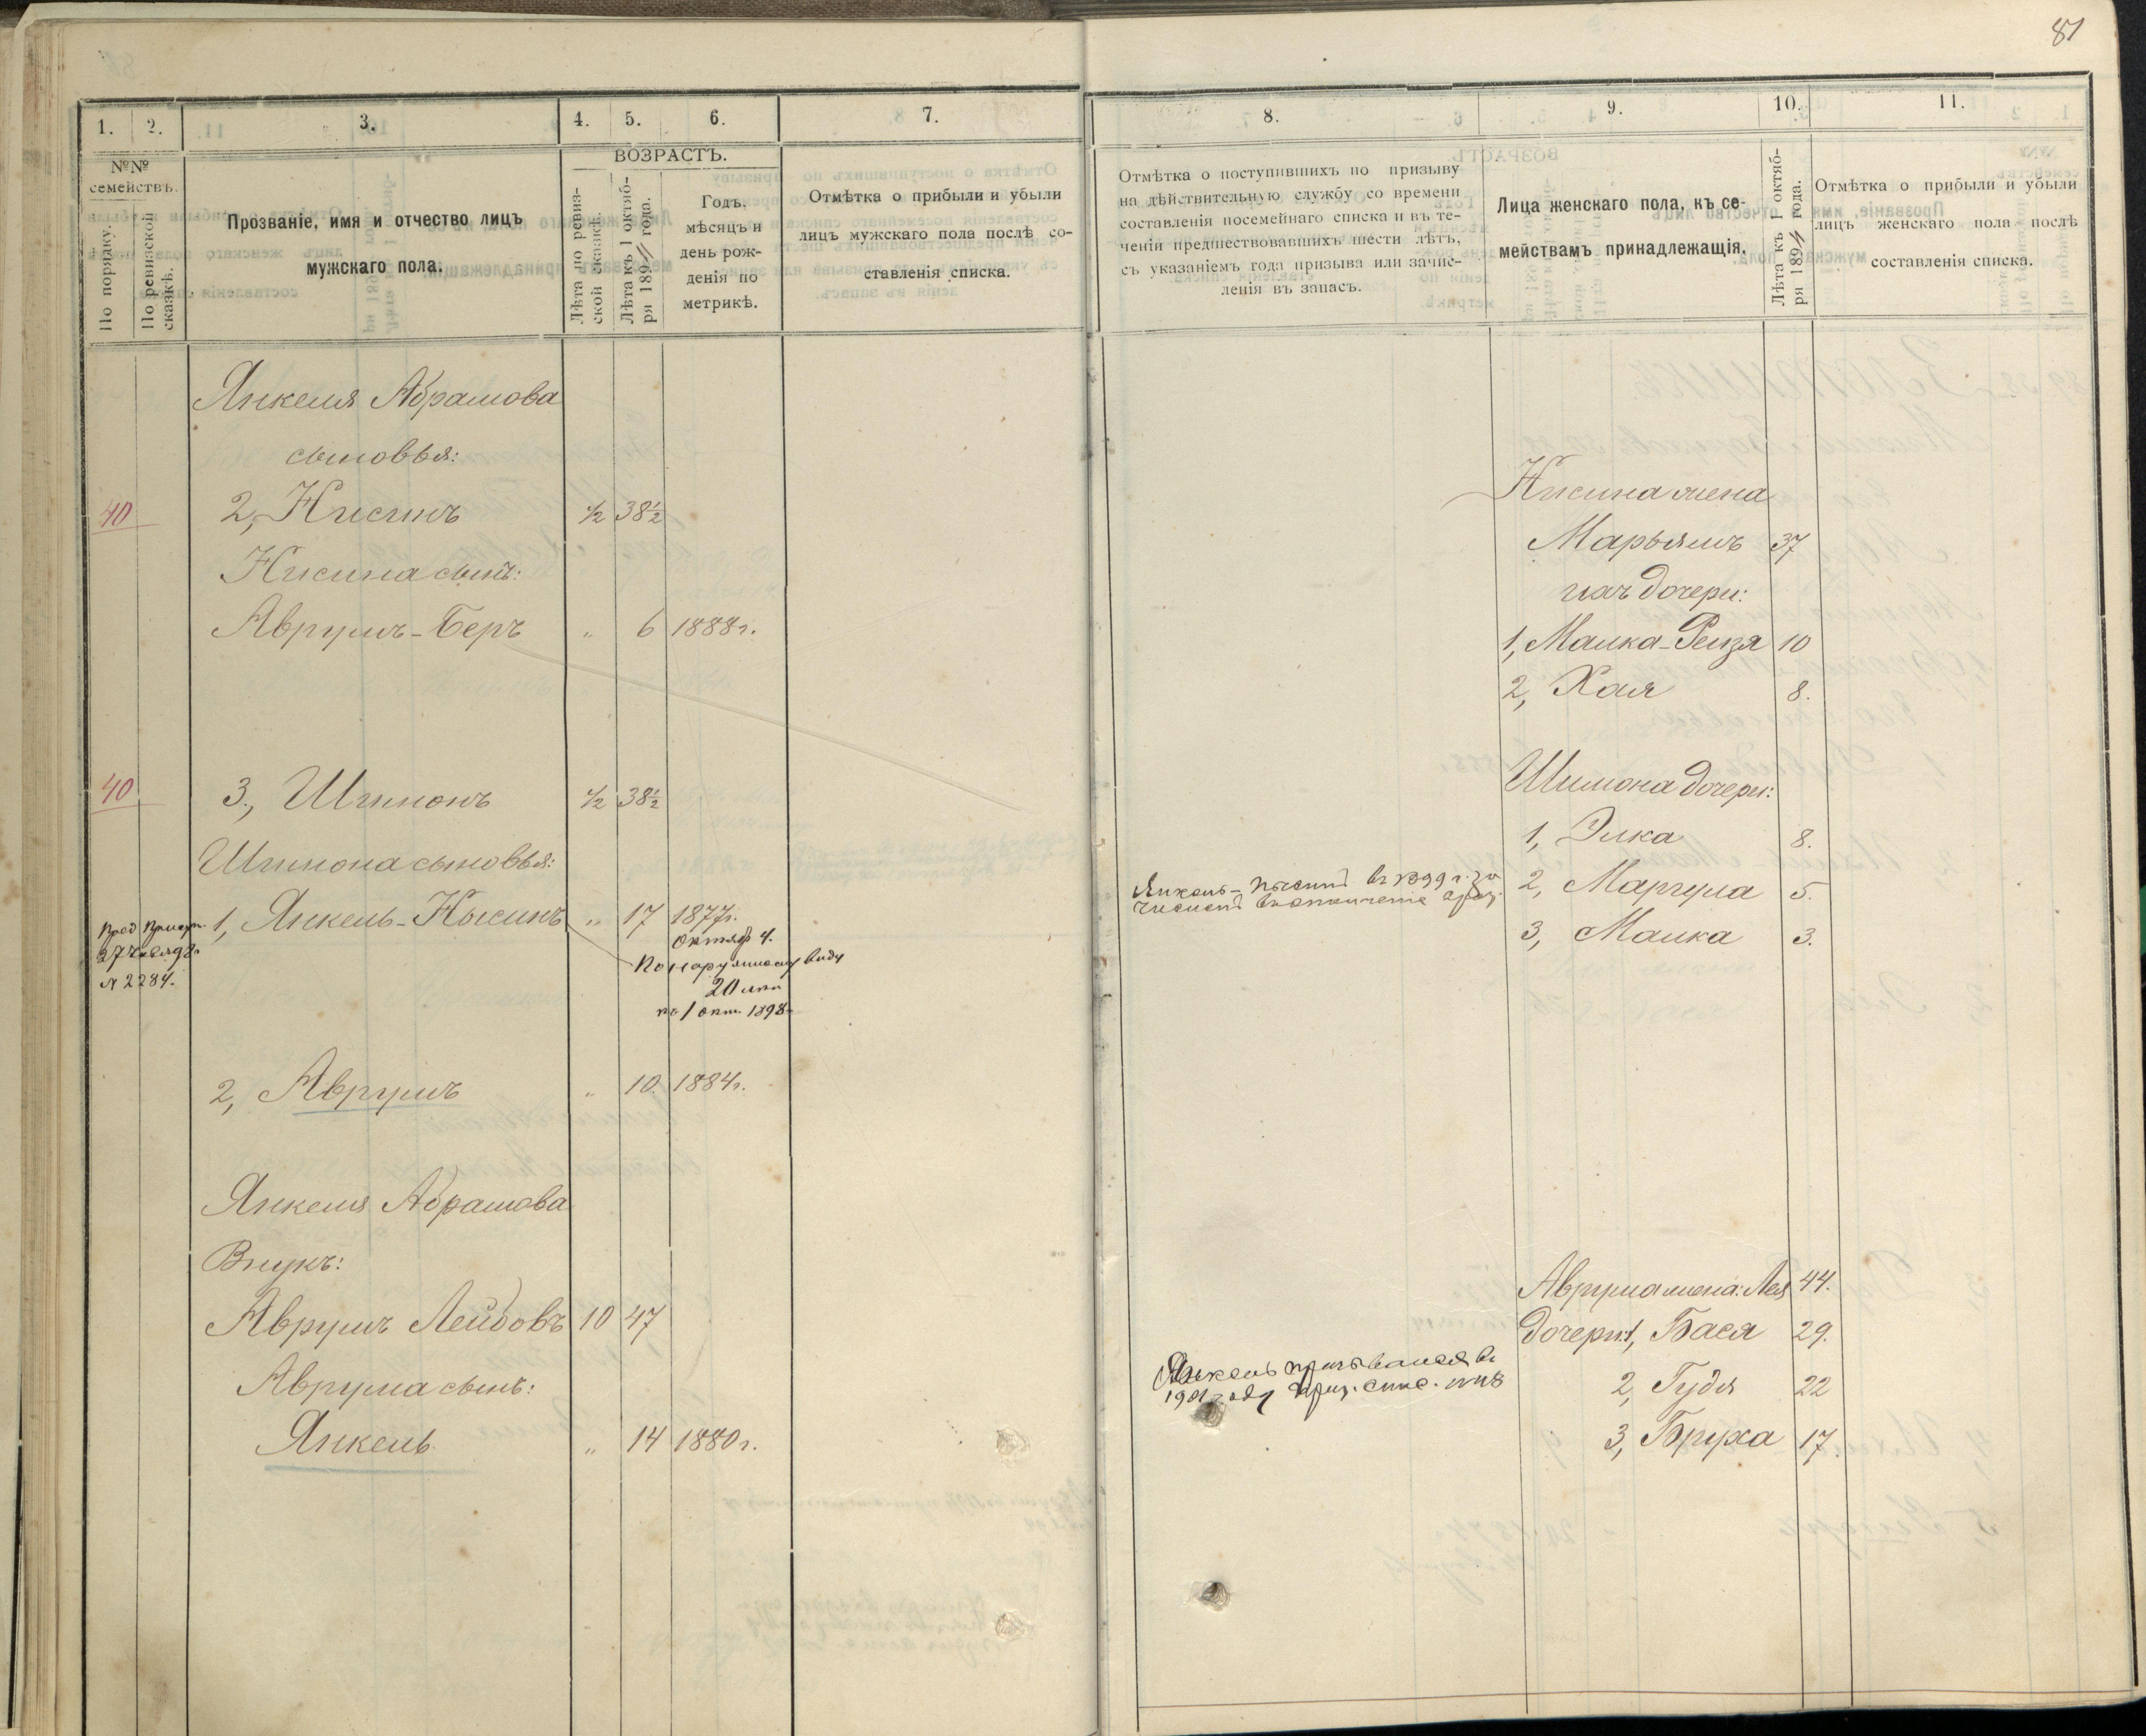 81
1. 2. 3. 4. 5. 6. 7.
№№ семействъ.
По порядку.
По ревизской сказкѣ.
Прозваніе, имя и отчество лицъ
мужскаго пола.
ВОЗРАСТЪ.
Лѣта по ревиз-
ской сказкѣ.
Лѣта къ 1 октяб-
ря 1894 года.
Годъ,
мѣсяцъ и
день рож-
денія по
метрикѣ.
Отмѣтка о прибыли и убыли
лицъ мужскаго пола послѣ со-
ставленія списка.
Янкеля Абрамова
сыновья:
40 2, Нисинъ 1/2 38 1/2
Нисина сынъ:
Аврумъ-Беръ " 6 1888 г.
40 3, Шимонъ 1/2 38 1/2
Шимона сыновья:
1, Янкель-Нысинъ " 17 1877 г.
октяб 4.
По наружному виду
20 лѣтъ
къ 1 окт. 1898
№ 2284.
2, Аврумъ " 10. 1884 г.
Янкеля Абрамова
Внукъ:
Аврумъ Лейбовъ 10 47
Аврума сынъ:
Янкель " 14 1880 г.
8. 9. 10. 11.
Отмѣтка о поступившихъ по призыву
на дѣйствительную службу со времени
составленія посемейнаго списка и въ те-
ченіи предшествовавшихъ шести лѣтъ,
съ указаніемъ года призыва или зачис-
ленія въ запасъ.
Лица женскаго пола, къ се-
мействамъ принадлежащія.
Лѣта къ 1 октяб-
ря 1894 года.
Отмѣтка о прибыли и убыли
лицъ женскаго пола послѣ
составленія списка.
Нисина жена
Марьямъ 37
ихъ дочери:
1, Малка-Рейзя 10
2, Хая 8.
Шимона дочери:
1, Элка 8.
2, Маргула 5.
3, Малка 3.
Янкель-Нысинъ въ 1899 г. за
численъ въ ополченіе
Аврума жена: Лея 44.
дочери: 1, Бася 29.
2, Гудя 22
3, Бруха 17.
Янкель призывался въ
1901 году приз. спис.